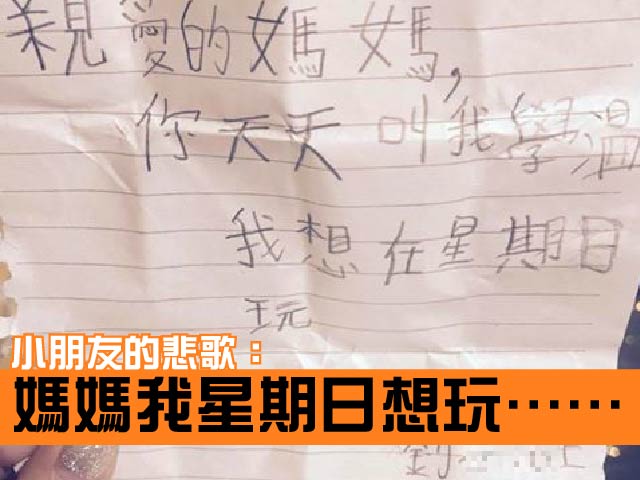 親愛的媽媽,
你天天叫我學溫
我想在星期日
玩
小朋友的悲歌：
媽媽我星期日想玩……
劉